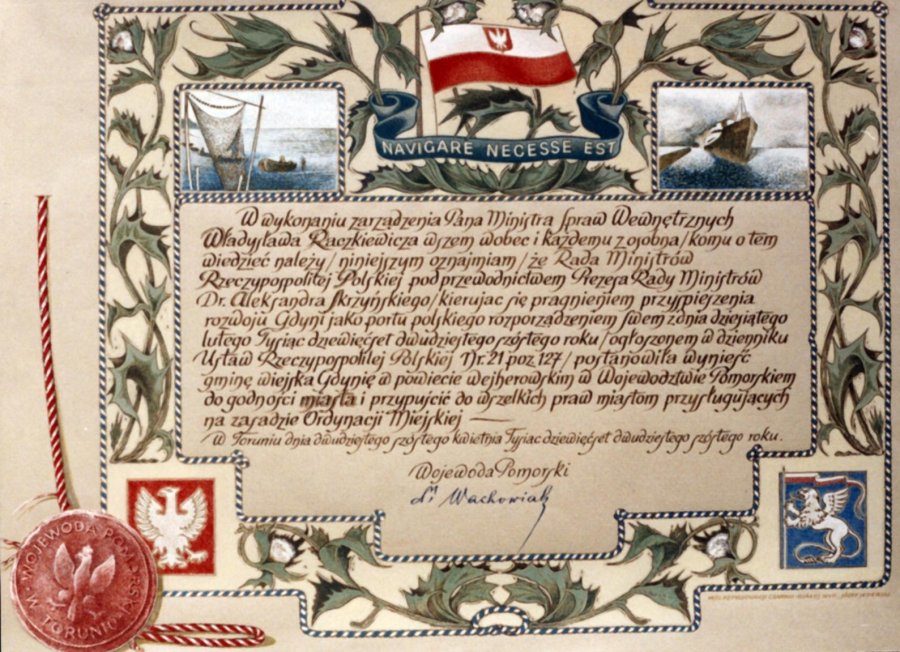 NAVIGARE NECESSE EST
W wykonaniu zarządzenia Pana Ministra Spraw Wewnętrznych
Władysława Raczkiewicza wszem wobec i każdemu z osobna/komu o tem
wiedzieć należy/niniejszym oznajmiam/że Rada Ministrów
Rzeczypospolitej Polskiej pod przewodnictwem Prezesa Rady Ministrów
Dr. Aleksandra Skrzyńskiego/kierując się pragnieniem przyspieszenia
rozwoju Gdyni jako portu polskiego rozporządzeniem swem z dnia dziesiątego
lutego Tysiąc dziewięćset dwudziestego szóstego roku/ogłoszonem w dzienniku
Ustaw Rzeczypospolitej Polskiej Nr. 21 poz 127/postanowiła wynieść
gminę wiejską Gdynię w powiecie wejherowskim w Województwie Pomorskiem
do godności miasta i przypuścić do wszelkich praw miastom przysługujących
na zasadzie Ordynacji Miejskiej —
W Toruniu dnia dwudziestego szóstego kwietnia Tysiąc dziewięćset dwudziestego szóstego roku.
Wojewoda Pomorski
Wachowiak
WOJEWODA POMORSKI
TORUNIU